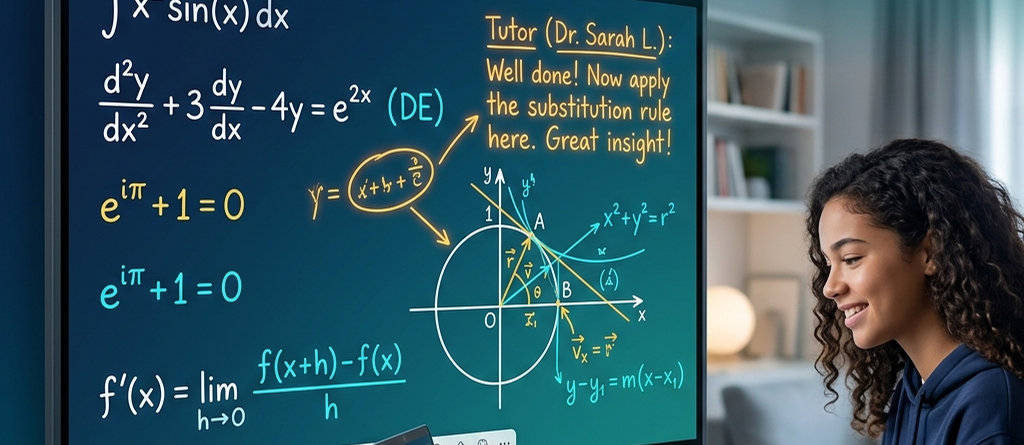 ∫ x sin(x) dx
d²y/dx² + 3 dy/dx − 4y = e²ˣ (DE)
e^{iπ} + 1 = 0
e^{iπ} + 1 = 0
f'(x) = lim h→0 f(x+h)−f(x) / h
Tutor (Dr. Sarah L.):
Well done! Now apply
the substitution rule
here. Great insight!
y =
y
1
A
x²+y²=r²
r⃗
v⃗
θ
B
O
x
v⃗ₓ = r⃗
y−y₁=m(x−x₁)